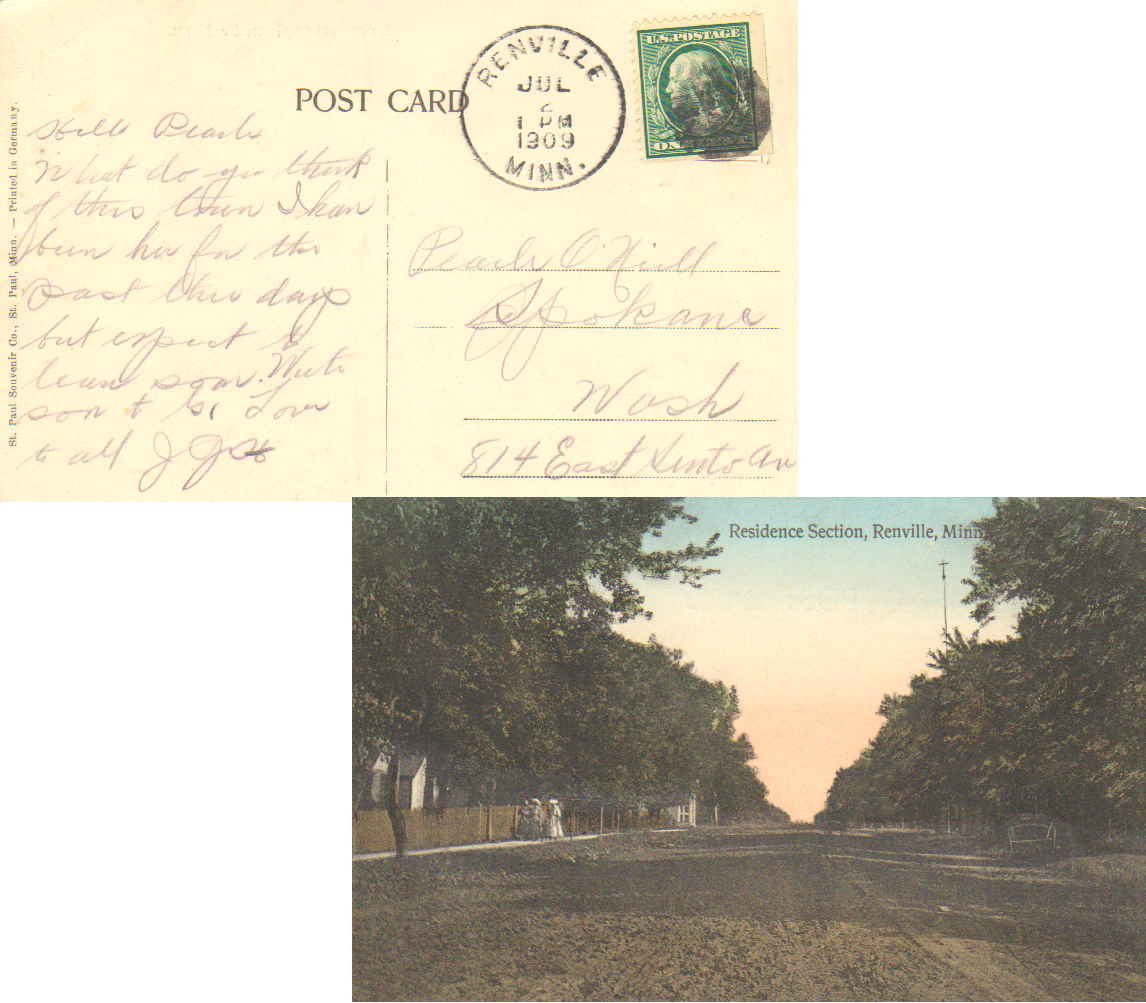 POST CARD
RENVILLE
JUL
2
1 PM
1909
MINN.
U.S. POSTAGE
ONE
St. Paul Souvenir Co., St. Paul, Minn. — Printed in Germany.
Hello Pearle
What do you think
of this town I han
been her for the
past thre days
but expect to
leave soon. Write
soon to Love
to all J
Pearle O'Niell
Spokane
Wash
814 East Sinto Av
Residence Section, Renville, Minn